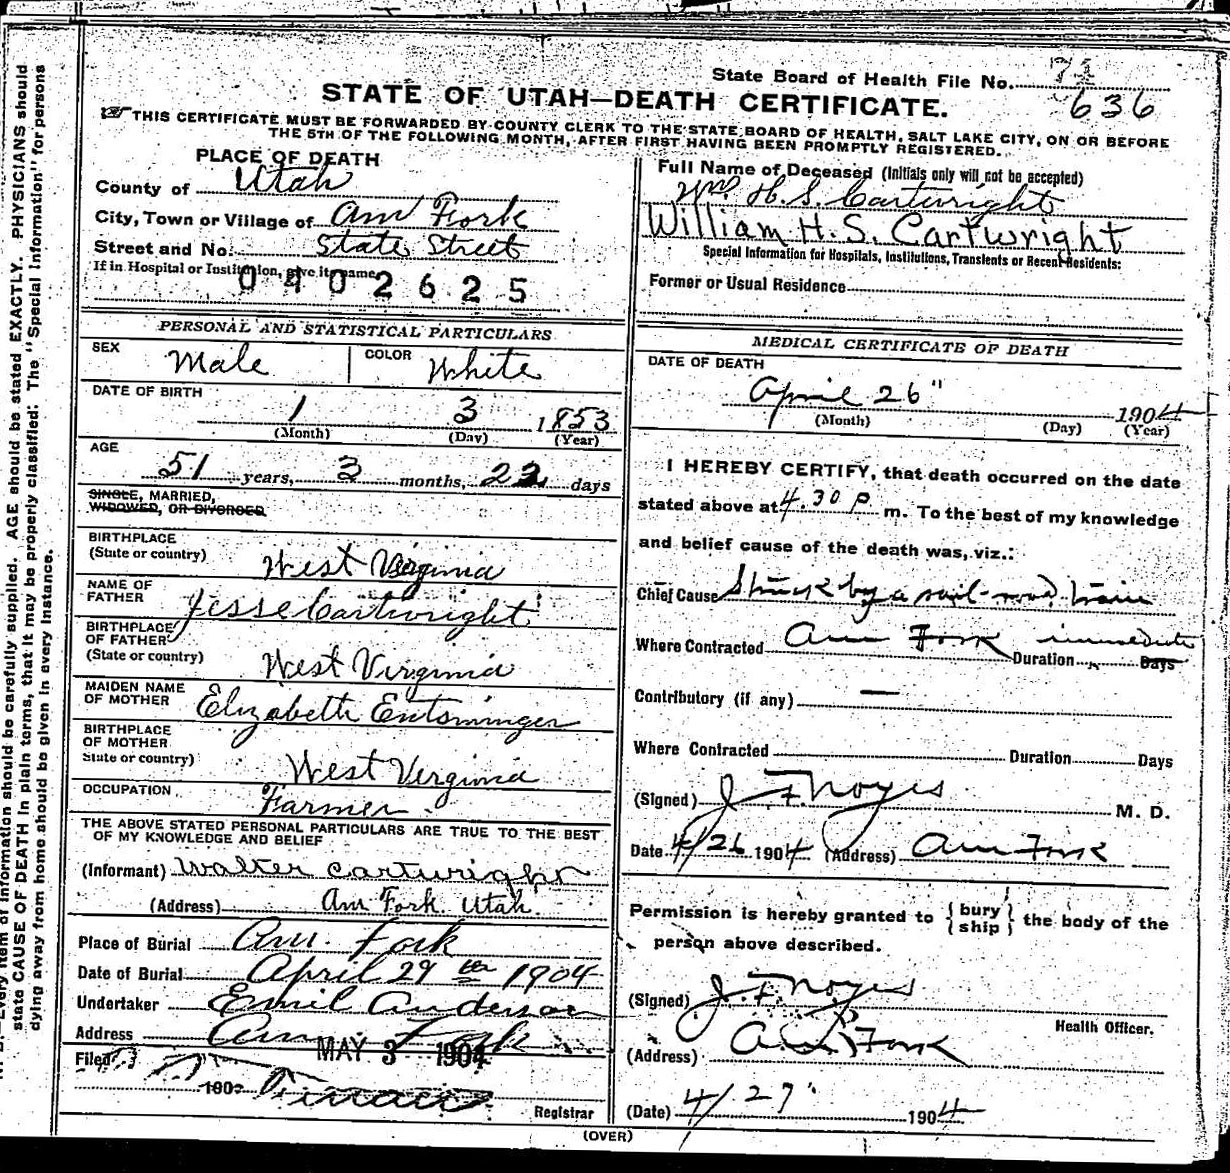 State Board of Health File No.
636
STATE OF UTAH—DEATH CERTIFICATE.
THIS CERTIFICATE MUST BE FORWARDED BY COUNTY CLERK TO THE STATE BOARD OF HEALTH, SALT LAKE CITY, ON OR BEFORE
THE 5TH OF THE FOLLOWING MONTH, AFTER FIRST HAVING BEEN PROMPTLY REGISTERED.
PLACE OF DEATH
County of Utah
City, Town or Village of Am Fork
Street and No. State Street
If in Hospital or Institution, give its name
0402625
Full Name of Deceased (Initials only will not be accepted)
Wm H. S. Cartwright
William H. S. Cartwright
Special Information for Hospitals, Institutions, Transients or Recent Residents:
Former or Usual Residence
PERSONAL AND STATISTICAL PARTICULARS
SEX Male COLOR White
DATE OF BIRTH
1 3 1853
(Month) (Day) (Year)
AGE
51 years, 3 months, 23 days
SINGLE, MARRIED,
WIDOWED, OR DIVORCED
BIRTHPLACE
(State or country) West Virginia
NAME OF
FATHER Jesse Cartwright
BIRTHPLACE
OF FATHER
(State or country) West Virginia
MAIDEN NAME
OF MOTHER Elizabeth Entsminger
BIRTHPLACE
OF MOTHER
State or country) West Virginia
OCCUPATION Farmer
THE ABOVE STATED PERSONAL PARTICULARS ARE TRUE TO THE BEST
OF MY KNOWLEDGE AND BELIEF
(Informant) Walter Cartwright
(Address) Am Fork Utah.
Place of Burial Am. Fork
Date of Burial April 29th 1904
Undertaker Emil Anderson
Address Am Fork
Filed MAY 3 1904
190
Registrar
MEDICAL CERTIFICATE OF DEATH
DATE OF DEATH
April 26" 1904
(Month) (Day) (Year)
I HEREBY CERTIFY, that death occurred on the date
stated above at 4.30 P m. To the best of my knowledge
and belief cause of the death was, viz.:
Chief Cause Struck by a rail-road train
Where Contracted Am Fork Duration immediate Days
Contributory (if any) —
Where Contracted Duration Days
(Signed) J. F. Noyes M. D.
Date 4/26 1904 (Address) Am Fork
Permission is hereby granted to { bury ship } the body of the
person above described.
(Signed) J. F. Noyes
Health Officer.
(Address) Am Fork
(Date) 4/27 1904
(OVER)
Every item of information should be carefully supplied. AGE should be stated EXACTLY. PHYSICIANS should
state CAUSE OF DEATH in plain terms, that it may be properly classified. The "Special Information" for persons
dying away from home should be given in every instance.